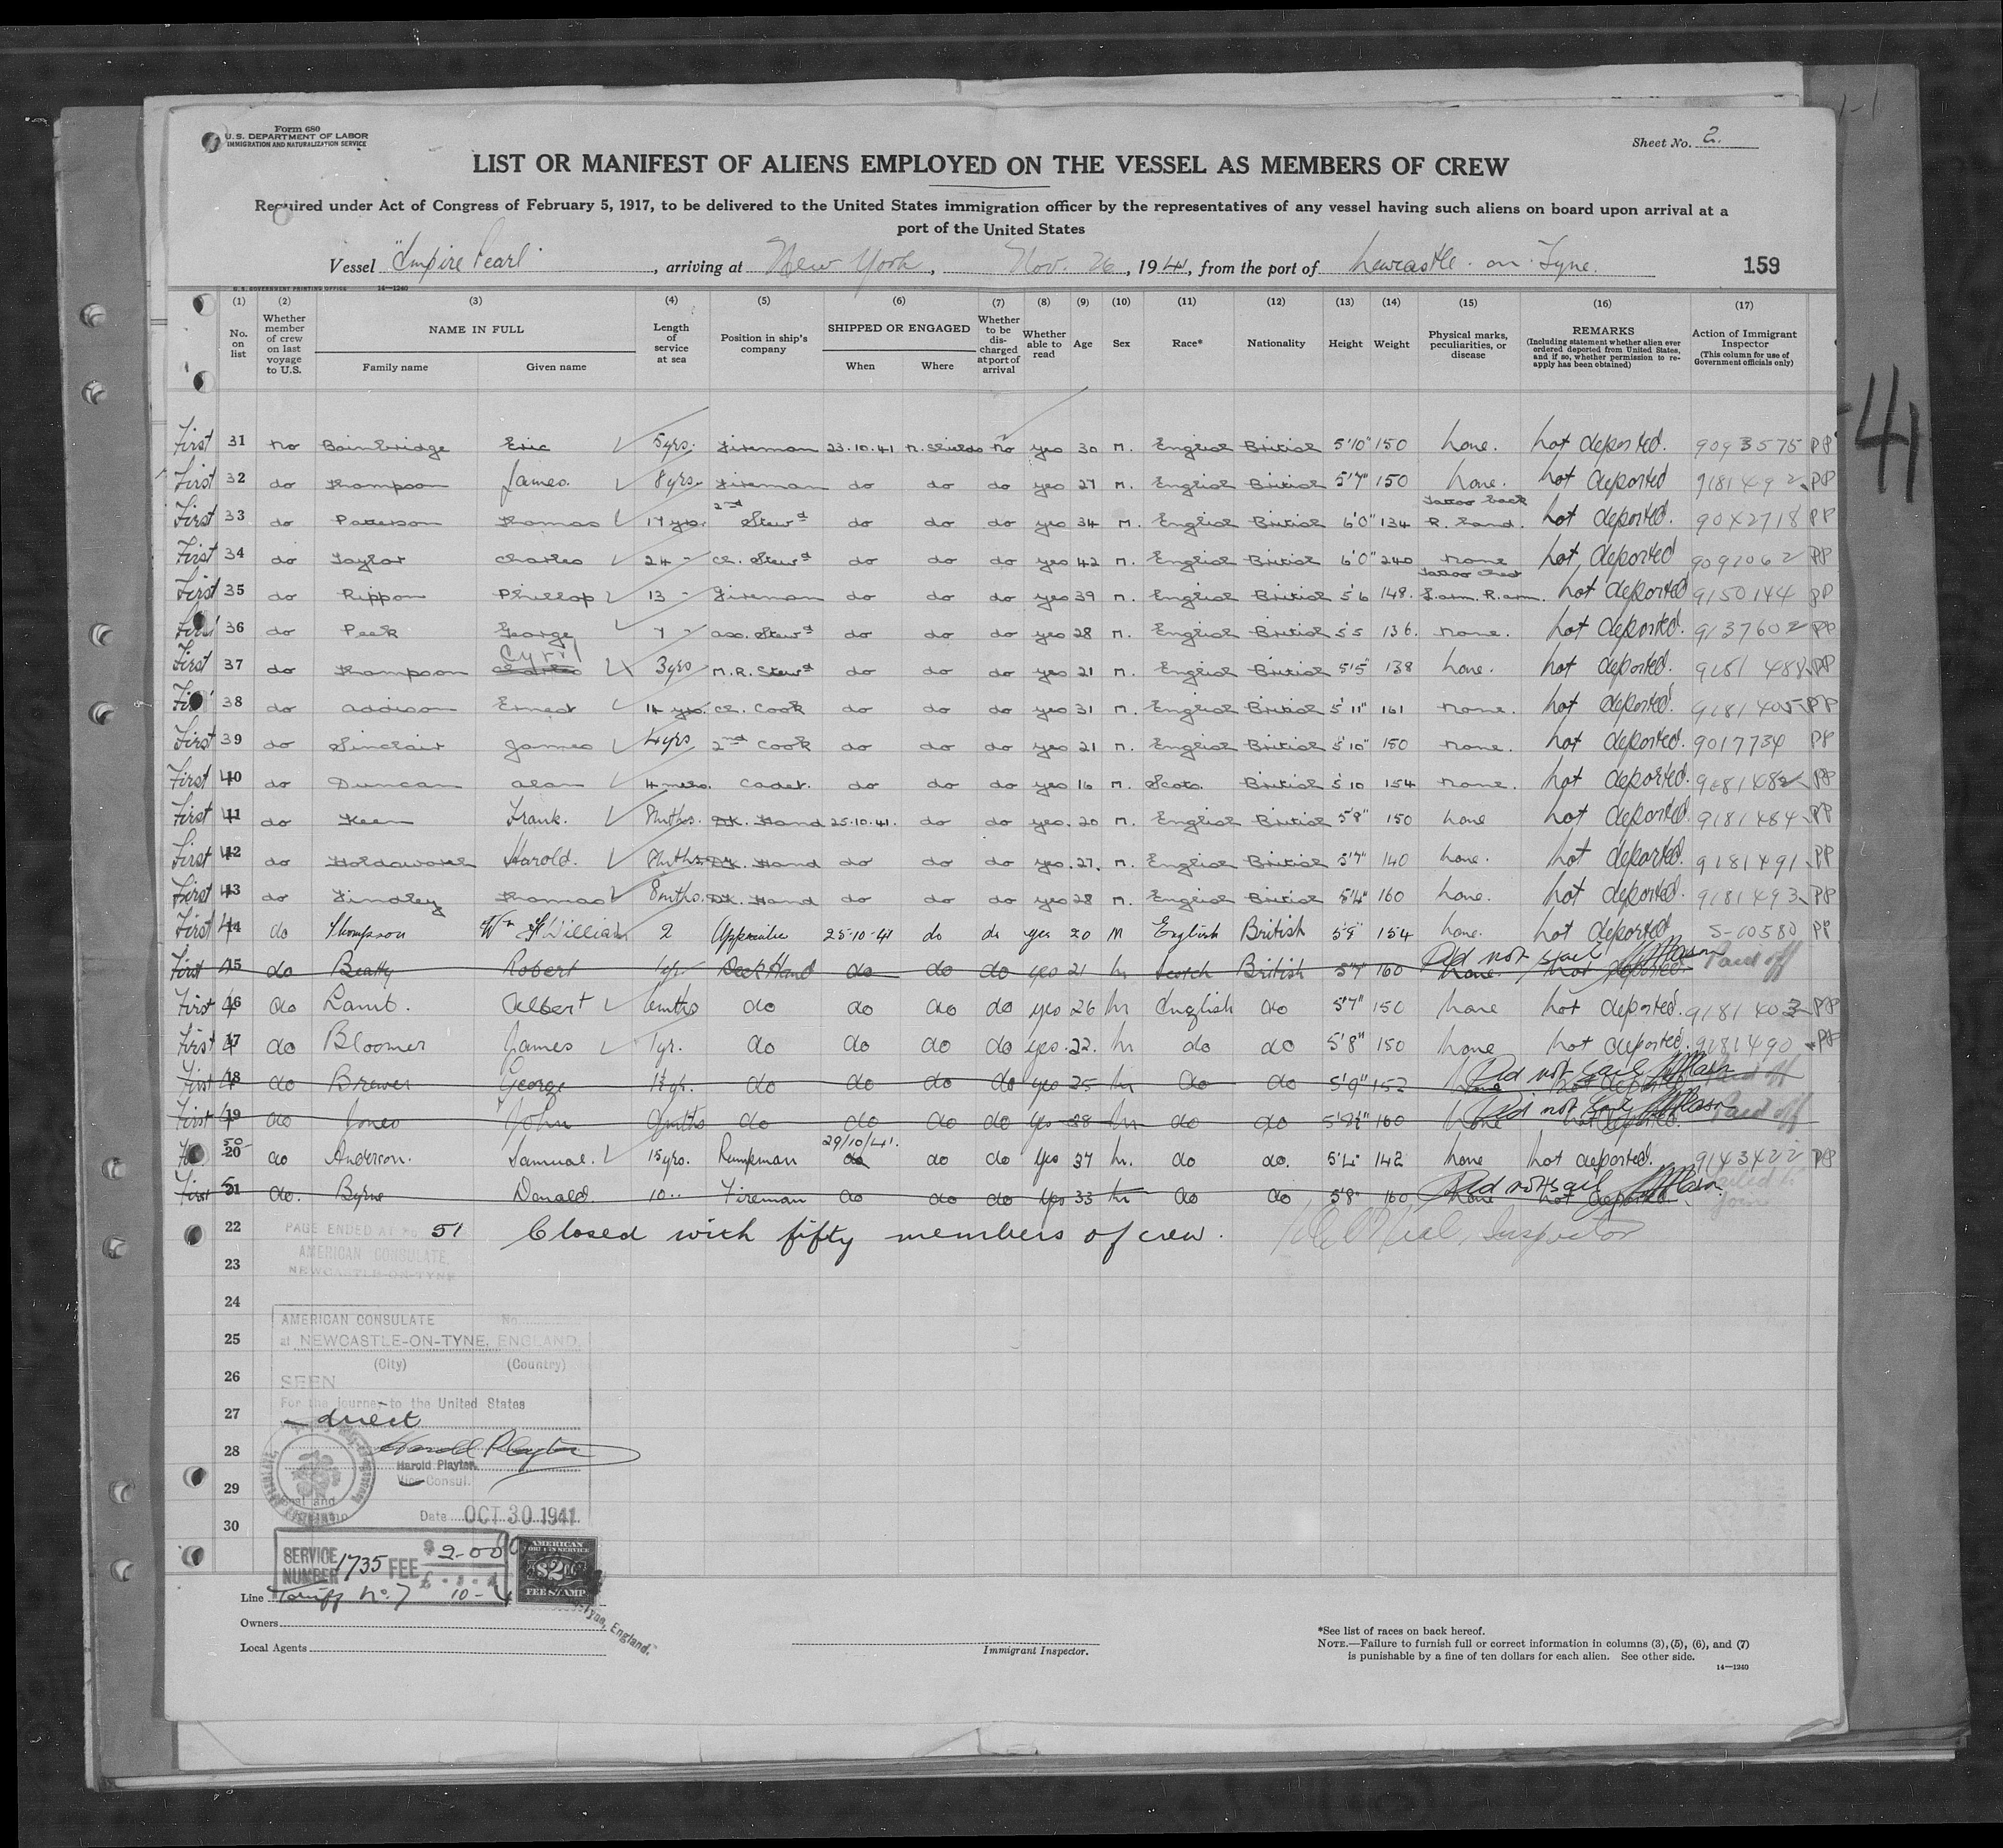 Form 680
U.S. DEPARTMENT OF LABOR
IMMIGRATION AND NATURALIZATION SERVICE
Sheet No. 2.
LIST OR MANIFEST OF ALIENS EMPLOYED ON THE VESSEL AS MEMBERS OF CREW
Required under Act of Congress of February 5, 1917, to be delivered to the United States immigration officer by the representatives of any vessel having such aliens on board upon arrival at a
port of the United States
Vessel "Empire Pearl", arriving at New York, Nov. 26, 1941, from the port of Newcastle-on-Tyne. 159
U.S. GOVERNMENT PRINTING OFFICE 14—1240
(1) (2) (3) (4) (5) (6) (7) (8) (9) (10) (11) (12) (13) (14) (15) (16) (17)
No. on list
Whether member of crew on last voyage to U.S.
NAME IN FULL
Family name Given name
Length of service at sea
Position in ship's company
SHIPPED OR ENGAGED
When Where
Whether to be discharged at port of arrival
Whether able to read
Age Sex Race* Nationality Height Weight
Physical marks, peculiarities, or disease
REMARKS
(Including statement whether alien ever ordered deported from United States, and if so, whether permission to re-apply has been obtained)
Action of Immigrant Inspector
(This column for use of Government officials only)
First 31 no Bainbridge Eric 5yrs. Fireman 23.10.41 N. Shields no yes 30 M. English British 5'10" 150 none. not deported. 9093575 PP
First 32 do Thompson James. 8yrs. Fireman do do do yes 27 M. English British 5'7" 150 none. not deported 9181492 PP
First 33 do Patterson Thomas 17 yrs. 2nd Stewd do do do yes 34 M. English British 6'0" 134 Tattoo back R. hand. not deported. 9042718 PP
First 34 do Taylor Charles 24 " Ch. Stewd do do do yes 42 M. English British 6'0" 240 none not deported 9092062 PP
First 35 do Rippon Phillop 13 " Fireman do do do yes 39 M. English British 5'6 148. Tattoo Chest L.arm. R.arm. not deported 9150144 PP
First 36 do Peek George 7 " ass. Stewd do do do yes 28 M. English British 5'5 136. none. not deported. 9137602 PP
First 37 do Thompson Charles Cyril 3yrs M.R. Stewd do do do yes 21 M. English British 5'5" 138 none. not deported. 9181 488 PP
First 38 do Addison Ernest 14 yrs. Ch. Cook do do do yes 31 M. English British 5'11" 161 none. not deported. 9181405 PP
First 39 do Sinclair James 4yrs 2nd Cook do do do yes 21 M. English British 5'10" 150 none. not deported. 9017734 PP
First 40 do Duncan Alan 4 mths. Cadet. do do do yes 16 M. Scots. British 5'10 154 none. not deported. 9181482 PP
First 41 do Keen Frank. 8mths. Dk. Hand 25.10.41. do do yes. 20 M. English British 5'8" 150 none not deported. 9181484 PP
First 42 do Holdsworth Harold. 8mths. Dk. Hand do do do yes. 27. M. English British 5'7" 140 none. not deported. 9181491 PP
First 43 do Findley Thomas 8mths. Dk. Hand do do do yes 28 M. English British 5'4" 160 none. not deported. 9181493 PP
First 44 do Thompson Wm William 2 Apprentice 25-10-41 do do yes 20 M English British 5'9" 154 none. not deported S-60580 PP
First 45 do Beatty Robert 1yr Deck Hand do do do yes 21 m Scotch British 5'7" 160 none. not deported Did not sail Paid off
First 46 do Lamb. Albert 6mths do do do do yes 26 m English do 5'7" 150 none not deported. 9181403 PP
First 47 do Bloomer James 1yr. do do do do yes. 22. m do do 5'8" 150 none not deported. 9181490 PP
First 48 do Brewer George 1½yr. do do do do yes 25 m do do 5'9" 152 none not deported Did not sail Paid off
First 49 do Jones John 9mths do do do do yes 28 m do do 5'9½" 160 none not deported. Did not sail Paid off
50 do Anderson. Samual. 15yrs. Pumpman 29/10/41. do do do yes 37 m. do do. 5'4" 142 none not deported. 9143422 PP
First 51 do. Byrne Donald. 10 " Fireman do do do yes 33 m do do 5'8" 160 none not deported. Did not sail Failed to Join
22 PAGE ENDED AT No 51 Closed with fifty members of crew. Inspector
AMERICAN CONSULATE,
NEWCASTLE-ON-TYNE
23
24
25
26
27
28
29
30
AMERICAN CONSULATE No.
at NEWCASTLE-ON-TYNE, ENGLAND.
(City) (Country)
SEEN
For the journey to the United States
direct
Harold Playter
Harold Playter.
Vice Consul.
Seal and
Date OCT 30 1941
SERVICE NUMBER 1735 FEE $ 2.00
Tariff No. 7 10-
AMERICAN
$2.00
FEE STAMP
Tyne, England.
Line
Owners
Local Agents
Immigrant Inspector.
*See list of races on back hereof.
NOTE.—Failure to furnish full or correct information in columns (3), (5), (6), and (7)
is punishable by a fine of ten dollars for each alien. See other side.
14—1240
41